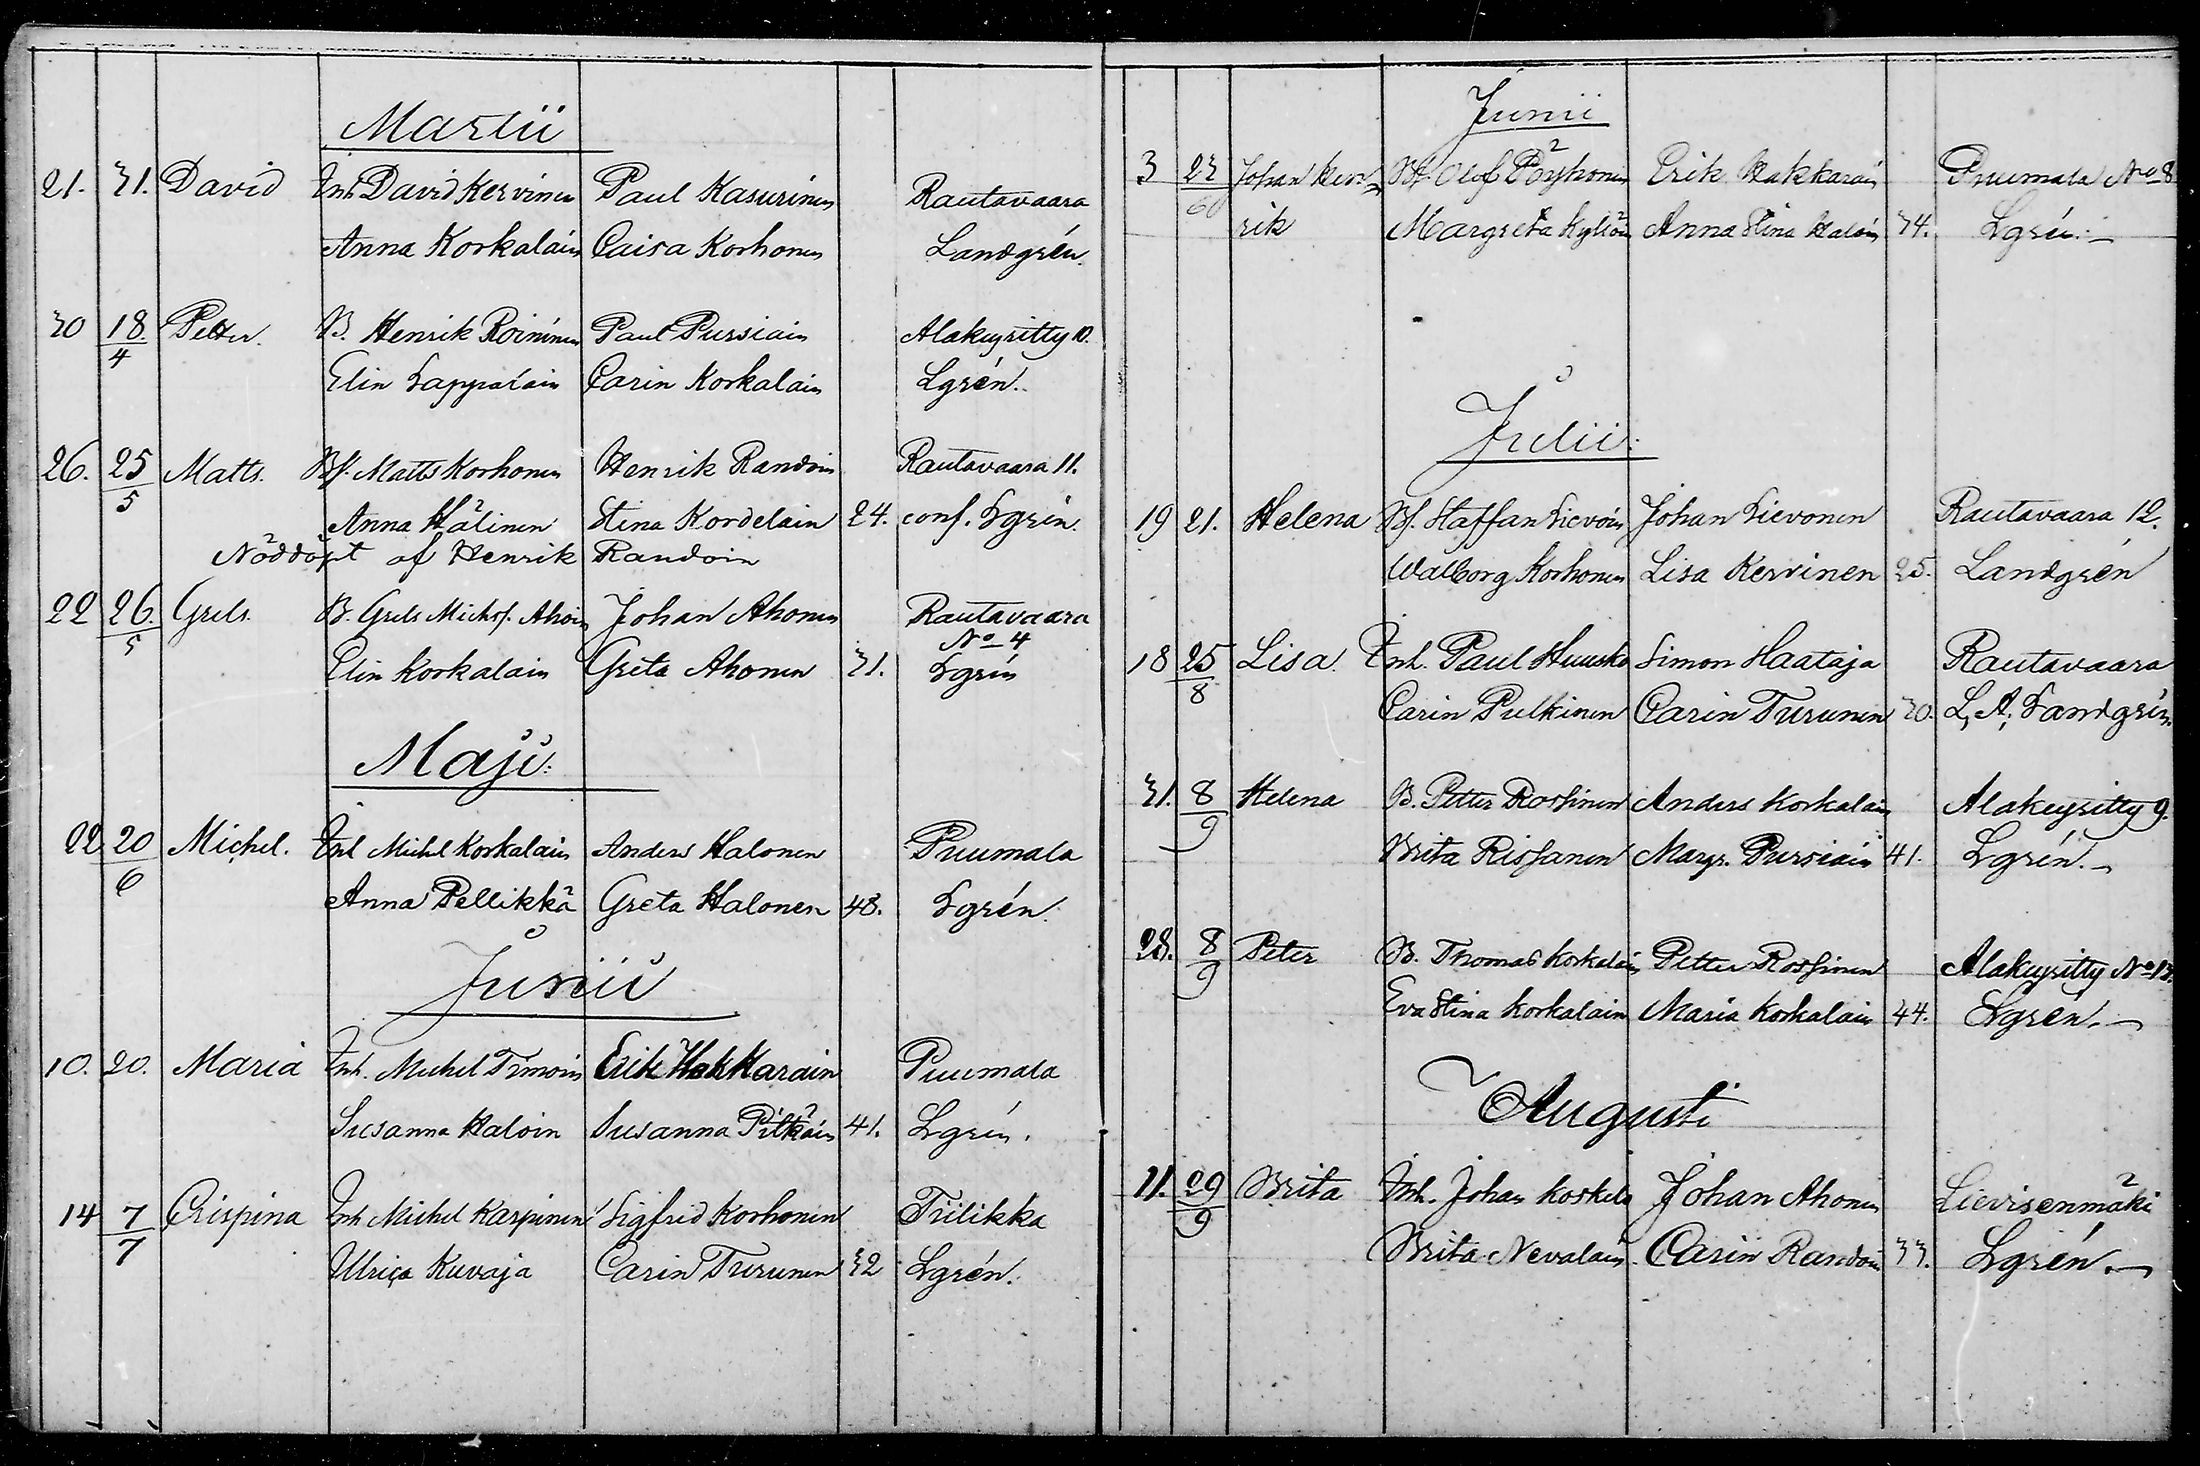 Martii
21. 31. David Inh David Kervinen Paul Kasurinen Rautavaara
Anna Korkalain Caisa Korhonen Landgrén.
30 18./4 Petter. B. Henrik Roininen Paul Pursiain Alakeyritty 10.
Elin Lappalain Carin Korkalain Lgrén.
26. 25/5 Matts. Bf. Matts Korhonen Henrik Randoin Rautavaara 11.
Anna Hälinen Stina Kordelain 24. conf. Lgrén.
Nöddöpt af Henrik Randoin
22 26./5 Grels. B. Grels Michsf. Ahoin Johan Ahonen Rautavaara
No 4
Elin Korkalain Greta Ahonen 31. Lgrén
Maji:
22 20/6 Michel. Inh Michel Korkalain Anders Halonen Puumala
Anna Pellikkä Greta Halonen 48. Lgrén.
Junii
10. 20. Maria Inh. Michel Timoin Erik Hakkarain Puumala
Susanna Haloin Susanna Pitkäin 41. Lgrén.
14 7/7 Crispina Inh Michel Karpinen Sigfred Korhonen Tiilikka
Ulrica Kuvaja Carin Turunen 32 Lgrén.
Junii
3 23/6 Johan Hen= Bf. Olof Pöyhonen Erik Hakkarain Puumala No 8
rik Margreta Anna Stina Haloin 34. Lgrén.
Julii:
19 21. Helena Bf. Staffan Lievoin Johan Lievonen Rautavaara 12.
Walborg Korhonen Lisa Kervinen 25. Landgrén
18 25/8 Lisa. Inh. Paul Huusko Simon Haataja Rautavaara
Carin Pulkinen Carin Turunen 30. L. A. Landgrén
31. 8/9 Helena B. Petter Rossinen Anders Korkalain Alakeyritty 9.
Brita Rissanen Margr. Pursiain 41. Lgrén.
28. 8/9 Peter B. Thomas Korkalain Petter Rossinen Alakeyritty No 13.
Eva Stina Korkalain Maria Korkalain 44. Lgren.
Augusti
11. 29/9 Brita Inh. Johan Koskelo Johan Ahonen Lievisenmäki
Brita Nevalain. Carin Randoin 33. Lgrén.